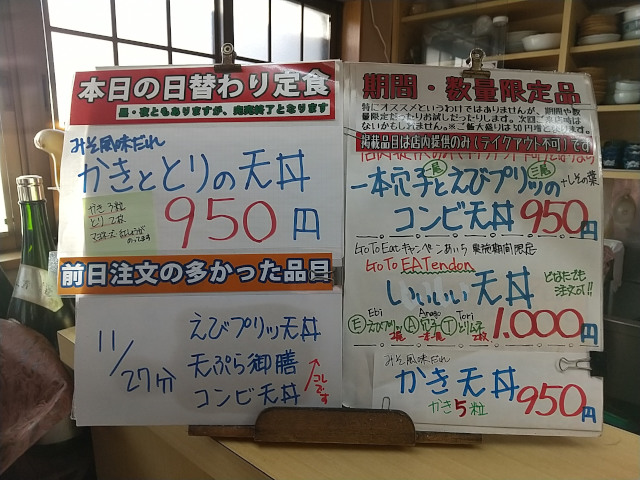 本日の日替わり定食
昼・夜ともありますが、完売終了となります
みそ風味だれ
かきととりの天丼
かき3粒
とり2枚
のってます
950円
前日注文の多かった品目
11/27分
えびプリッ天丼
天ぷら御膳
コンビ天丼
↑コレです
期間・数量限定品
特にオススメというわけではありませんが、期間や数
量限定だったりお試しだったりします。次回ご来店時は
ないかもしれません。※ご飯大盛りは50円増と
掲載品目は店内提供のみ(テイクアウト不可)です
一本穴子とえびプリッの+しその葉
一尾
コンビ天丼 950円
GoToEatキャンペーンあいち 実施期間限定
GoTo EATendon
いいいい天丼
どなたでも
注文可!!
Ebi Anago Tori
Ⓔえびプリッ Ⓐ穴子 Ⓣとりムネ
一本
1,000円
みそ風味だれ
かき天丼
かき5粒
950円